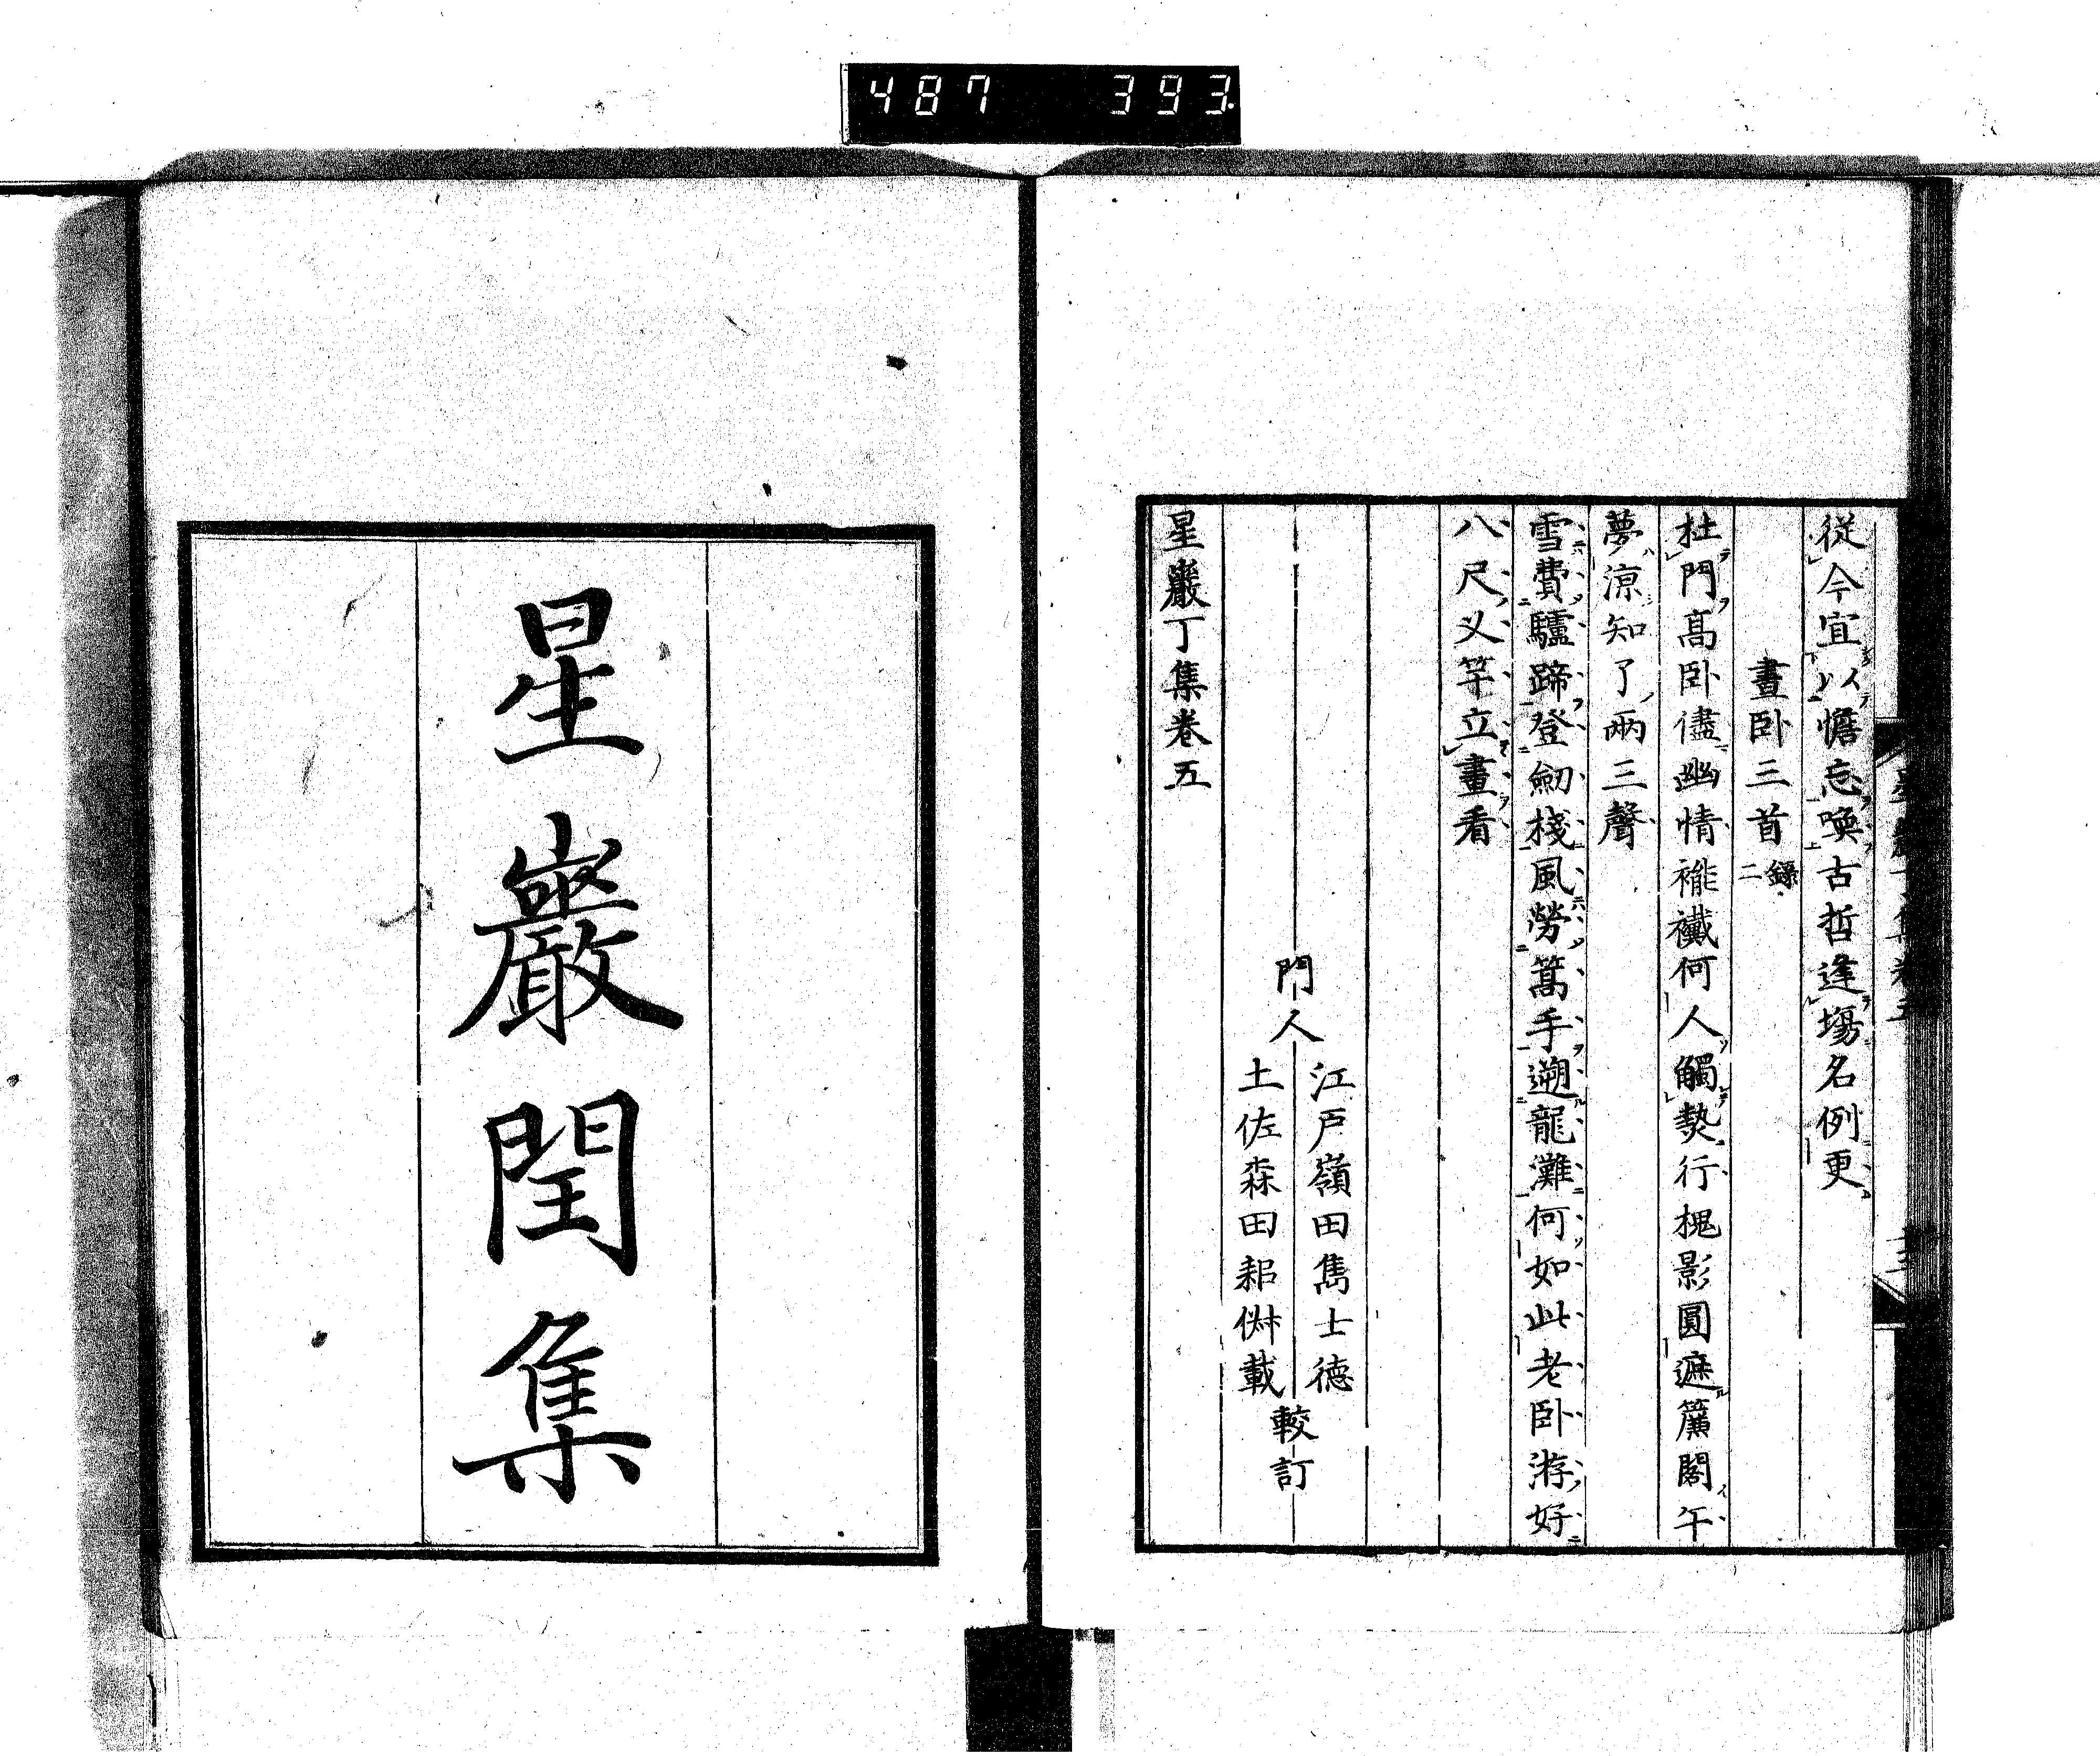 487 393
從今宜以儋忘喚古哲逢場名例更
晝臥三首錄二
杜門高臥儘幽情褦襶何人觸熱行槐影圓遮簾閣午
夢涼知了兩三聲
雪費驢蹄登劒棧風勞篙手遡龍灘何如此老臥游好
八尺乂竿立畫看
門人
江戶嶺田雋士德
土佐森田耜載
較訂
星巖丁集卷五
星巖閏集